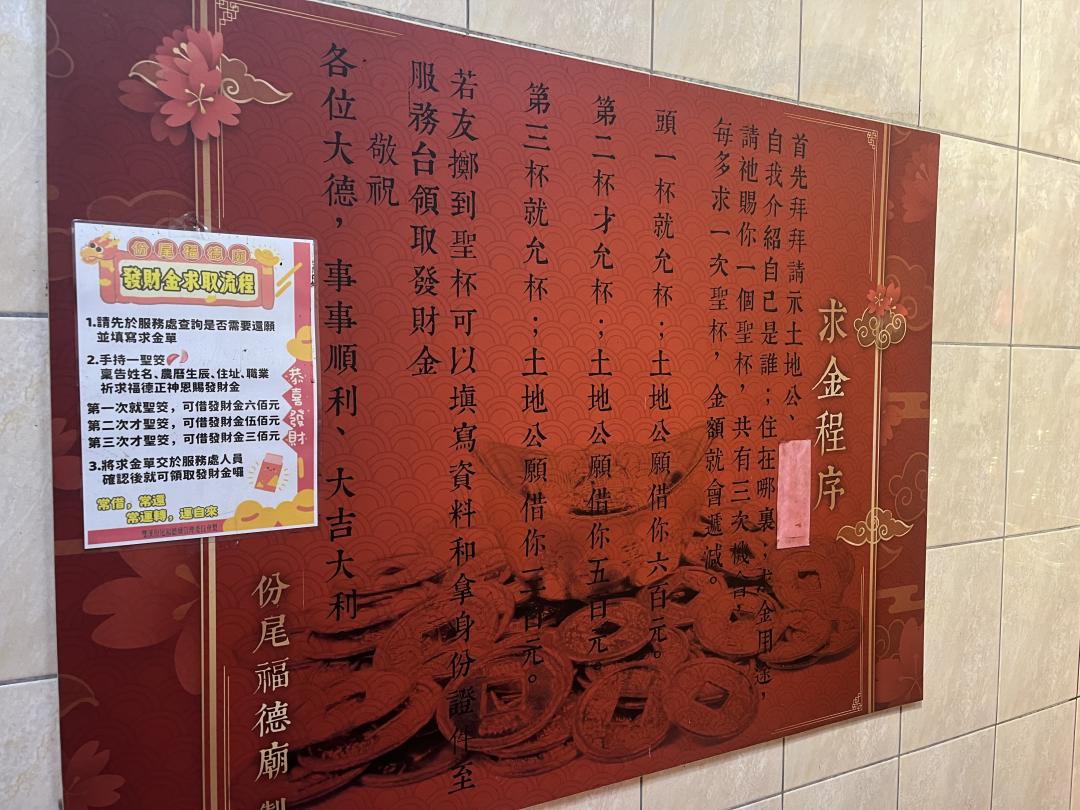 求金程序
首先拜拜請示土地公、
自我介紹自己是誰；住在哪裏；求金用途，
請祂賜你一個聖杯，共有三次機會，
每多求一次聖杯，金額就會遞減。
頭一杯就允杯；土地公願借你六百元。
第二杯才允杯；土地公願借你五百元。
第三杯就允杯；土地公願借你三百元。
若友擲到聖杯可以填寫資料和拿身份證件至
服務台領取發財金
敬祝
各位大德，事事順利、大吉大利
份尾福德廟 製
份尾福德廟
發財金求取流程
1.請先於服務處查詢是否需要還願
並填寫求金單
2.手持一聖筊
稟告姓名、農曆生辰、住址、職業
祈求福德正神恩賜發財金
第一次就聖筊，可借發財金六佰元
第二次才聖筊，可借發財金伍佰元
第三次才聖筊，可借發財金三佰元
3.將求金單交於服務處人員
確認後就可領取發財金囉
常借，常還
常運轉，運自來
恭喜發財